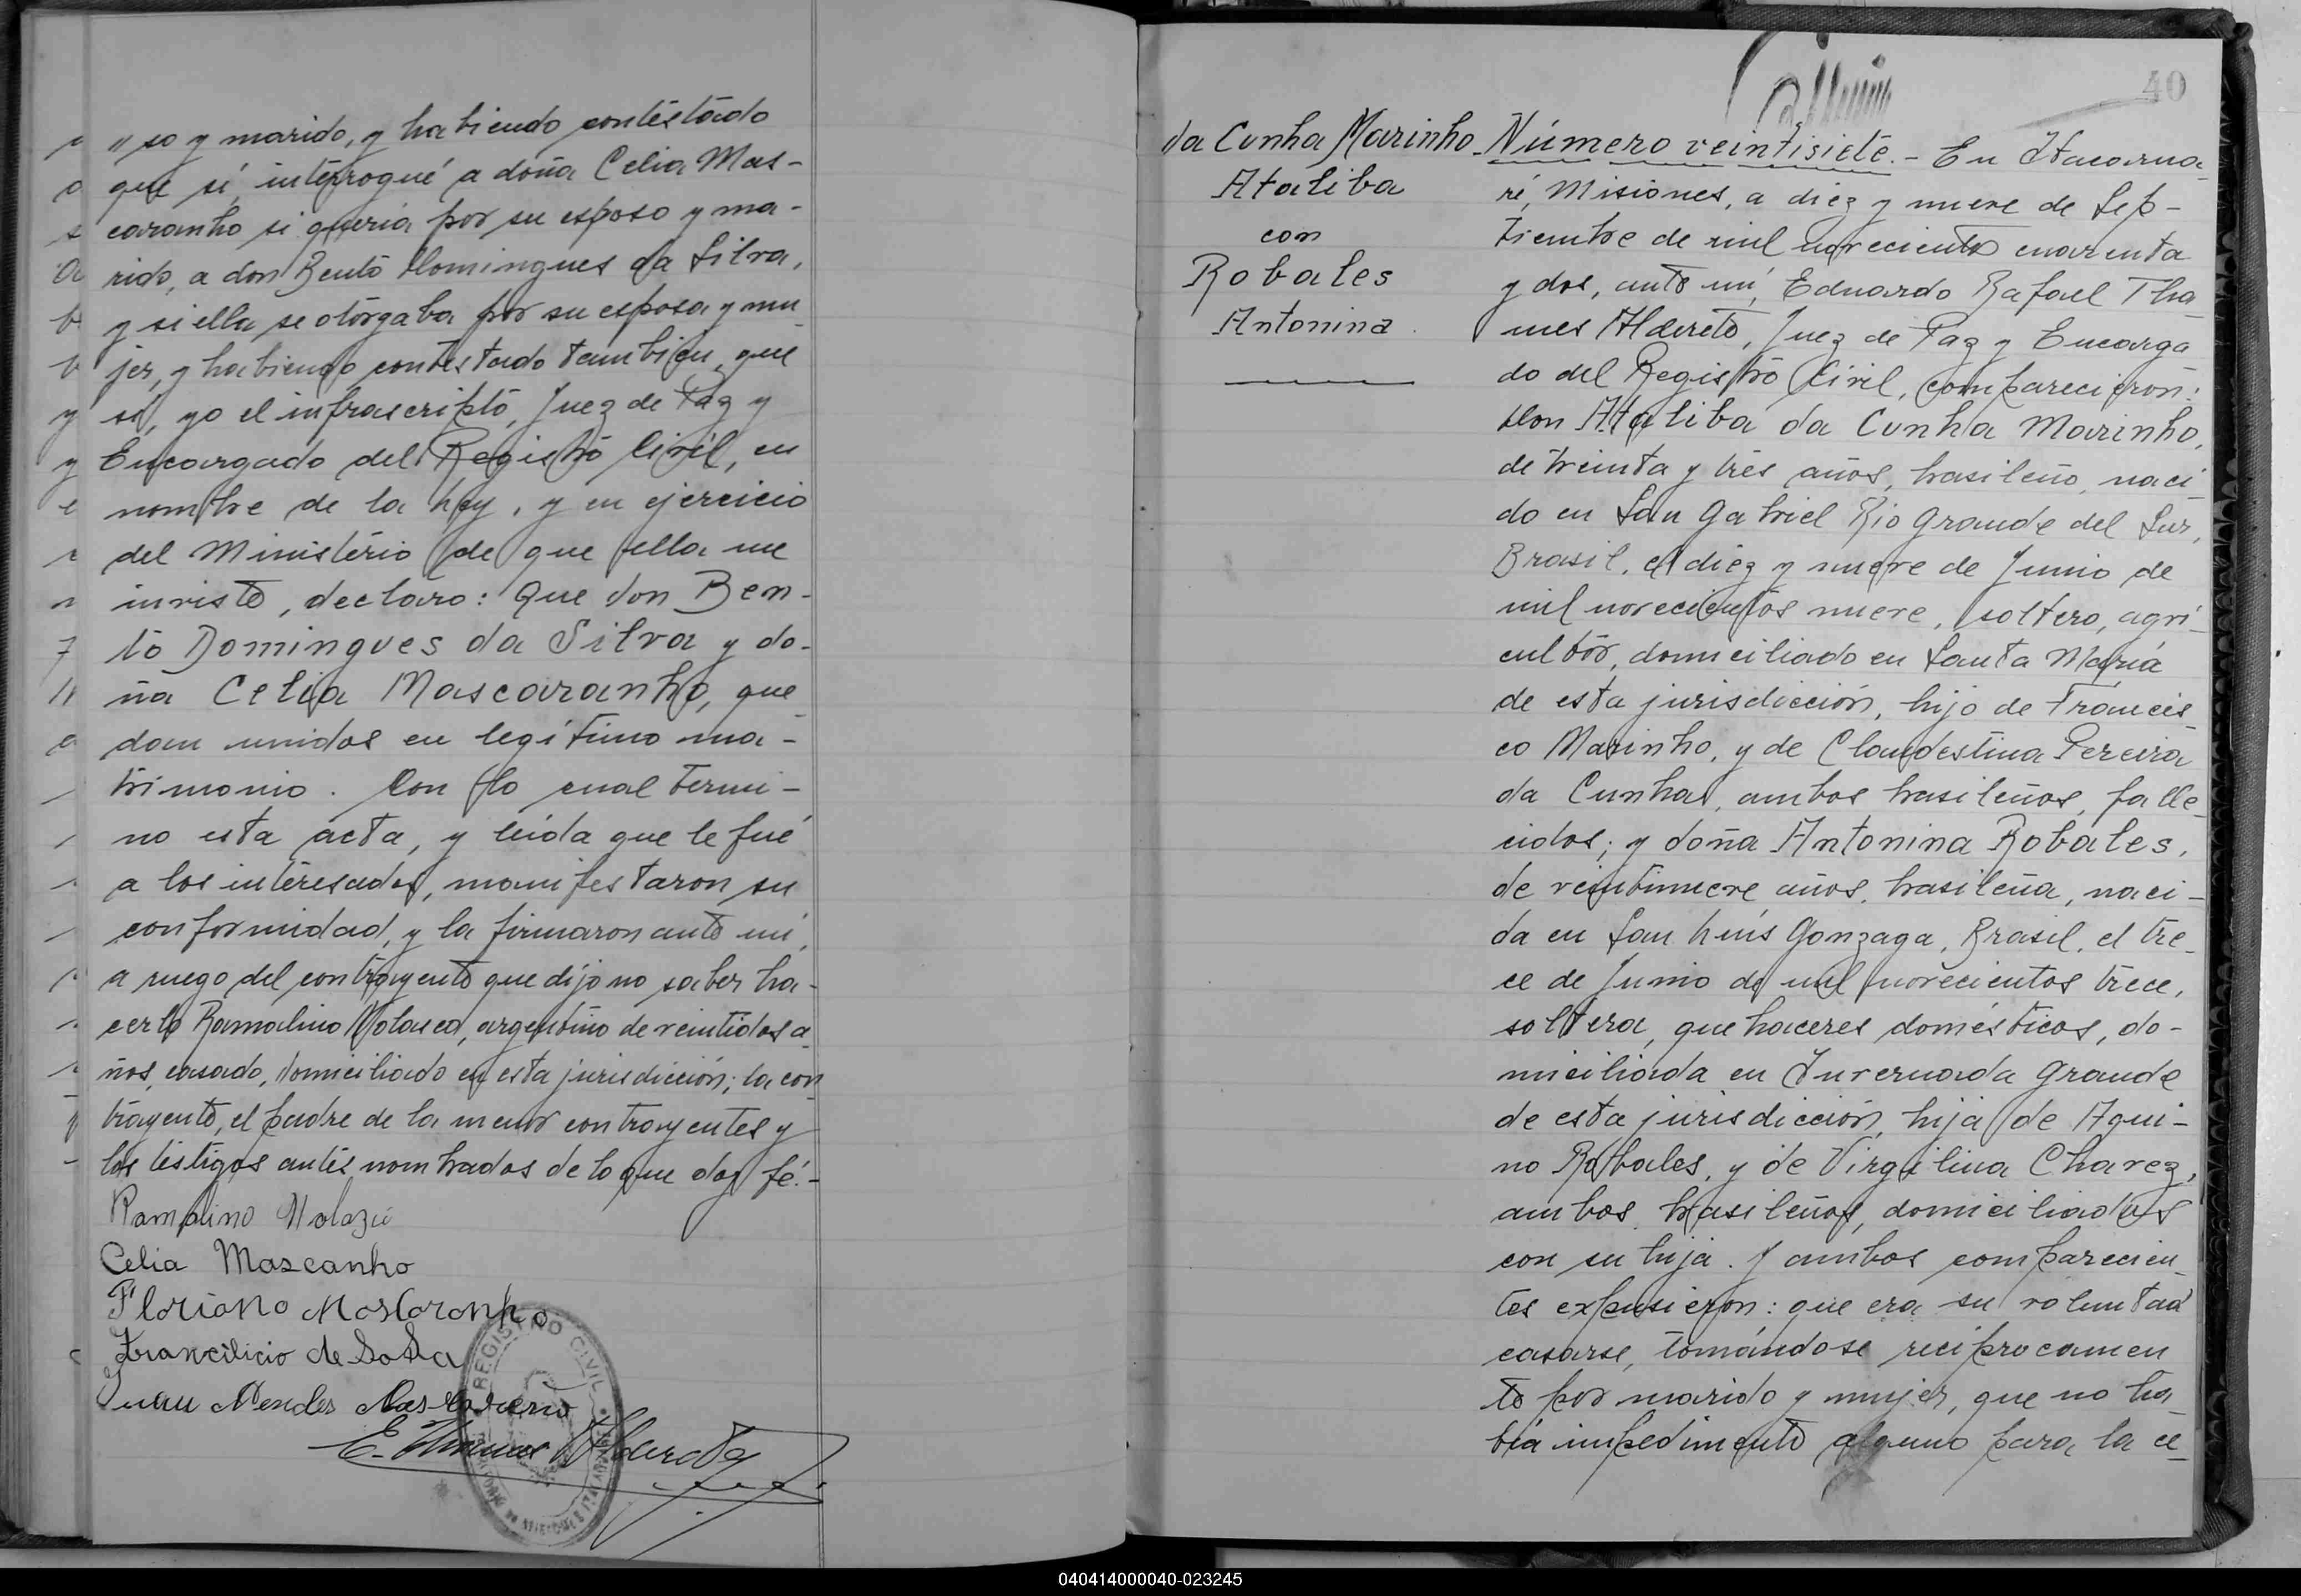 " so y marido, y habiendo contestado
que sí, interrogué a doña Celia Mas-
caranho si quería por su esposo y ma-
rido, a don Bento Domingues da Silva,
y si ella se otorgaba por su esposa y mu
jer, y habiendo contestado tambien, que
sí, yo el infrascripto, Juez de Paz y
Encargado del Registro Civil, en
nombre de la Ley, y en ejercicio
del Ministerio de que ella me
inviste, declaro: Que don Ben-
to Domingues da Silva y do-
ña Celia Mascaranho, que
dan unidos en legítimo ma-
trimonio. Con lo cual termi-
no esta acta, y leída que le fué
a los interesados, manifestaron su
conformidad, y la firmaron ante mí,
a ruego del contrayente que dijo no saber ha-
cerlo Ramalino, argentino de veintidos a
ños, casado, domiciliado en esta jurisdicción; la con
trayente, el padre de la menor contrayentes y
los testigos antes nombrados de lo que doy fé.-
Celia Mascanho
Floriano Mascaranho
de Sosa
Juan Mendes
E. Thames Alderete
REGISTRO CIVIL
40
da Cunha Marinho
Ataliba
con
Robales
Antonina
Número veintisiete.- En Itacarua
ré, Misiones, a diez y nueve de Sep-
tiembre de mil novecientos cuarenta
y dos, ante mí, Eduardo Rafael Tha
mes Alderete, Juez de Paz y Encarga
do del Registro Civil, comparecieron:
Don Ataliba da Cunha Marinho,
de treinta y tres años, brasileño, naci
do en San Gabriel Rio Grande del Sur,
Brasil, el diez y nueve de Junio de
mil novecientos nueve, soltero, agri-
cultor, domiciliado en Santa María
de esta jurisdicción, hijo de Francis-
co Marinho, y de Clandestina Pereira
da Cunha, ambos brasileños, falle-
cidos; y doña Antonina Robales,
de veintinueve años, brasileña, naci-
da en San Luis Gonzaga, Brasil, el tre-
ce de Junio de mil novecientos trece,
soltera, que haceres domésticos, do-
miciliada en Invernada Grande
de esta jurisdicción, hija de Aqui-
no Robales, y de Virgilina Chavez,
ambos brasileños, domiciliados
con su hija. Y ambos comparecien-
tes expusieron: que era su voluntad
casarse, tomándose recíprocamen
te por marido y mujer, que no ha-
bía impedimento alguno para la ce-
040414000040-023245